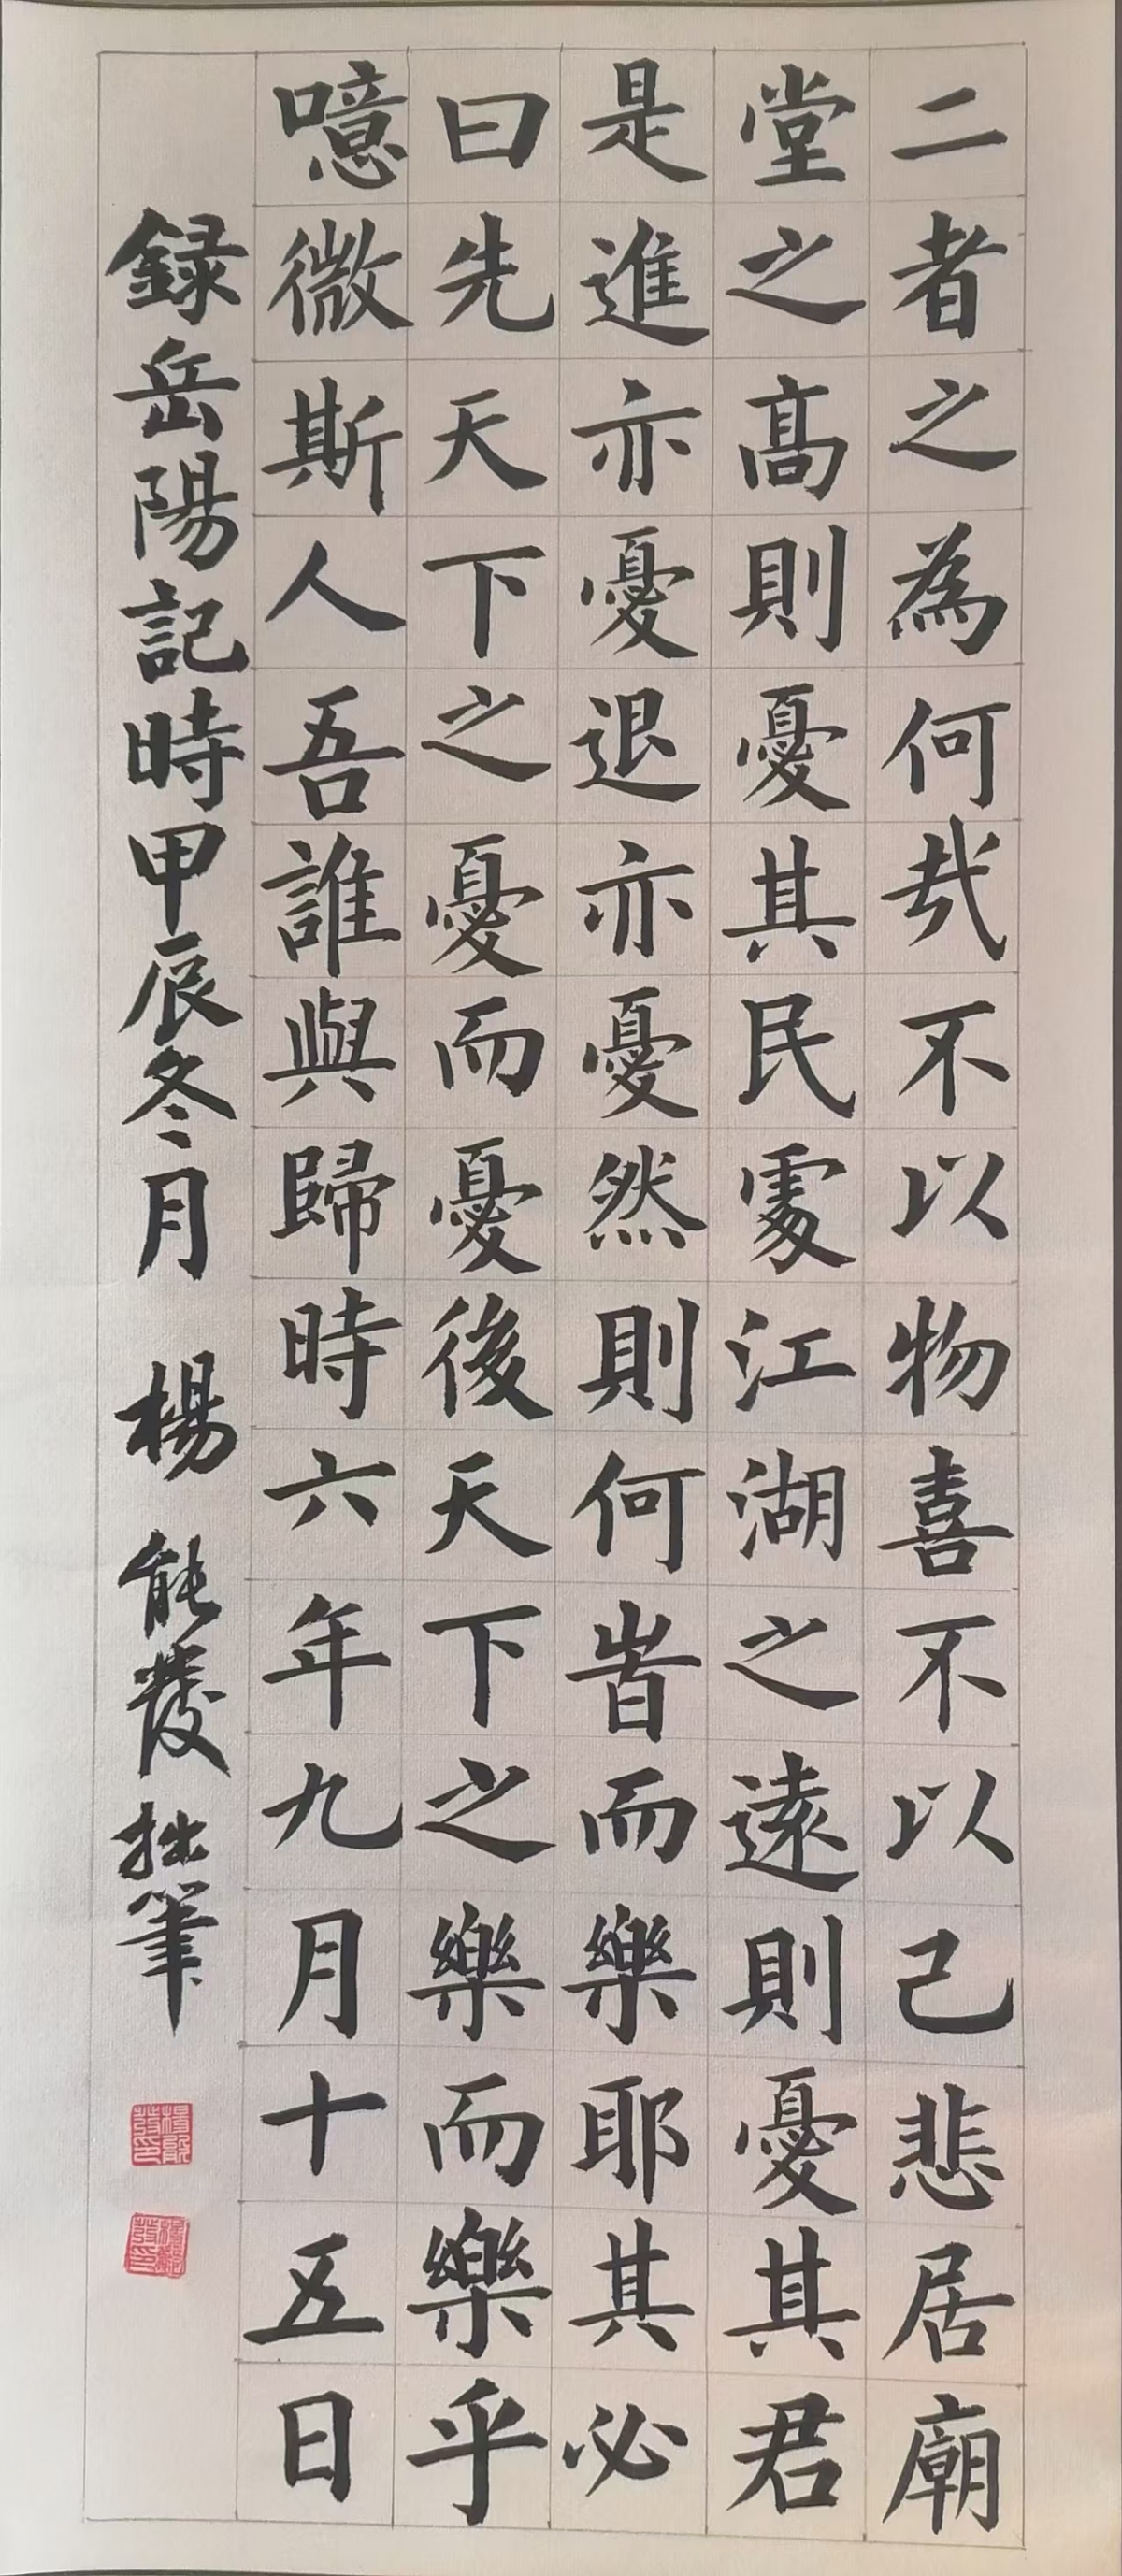 二者之為何哉不以物喜不以己悲居廟
堂之高則憂其民處江湖之遠則憂其君
是進亦憂退亦憂然則何旹而樂耶其必
曰先天下之憂而憂後天下之樂而樂乎
噫微斯人吾誰與歸時六年九月十五日
録岳陽記時甲辰冬月 楊能發拙筆